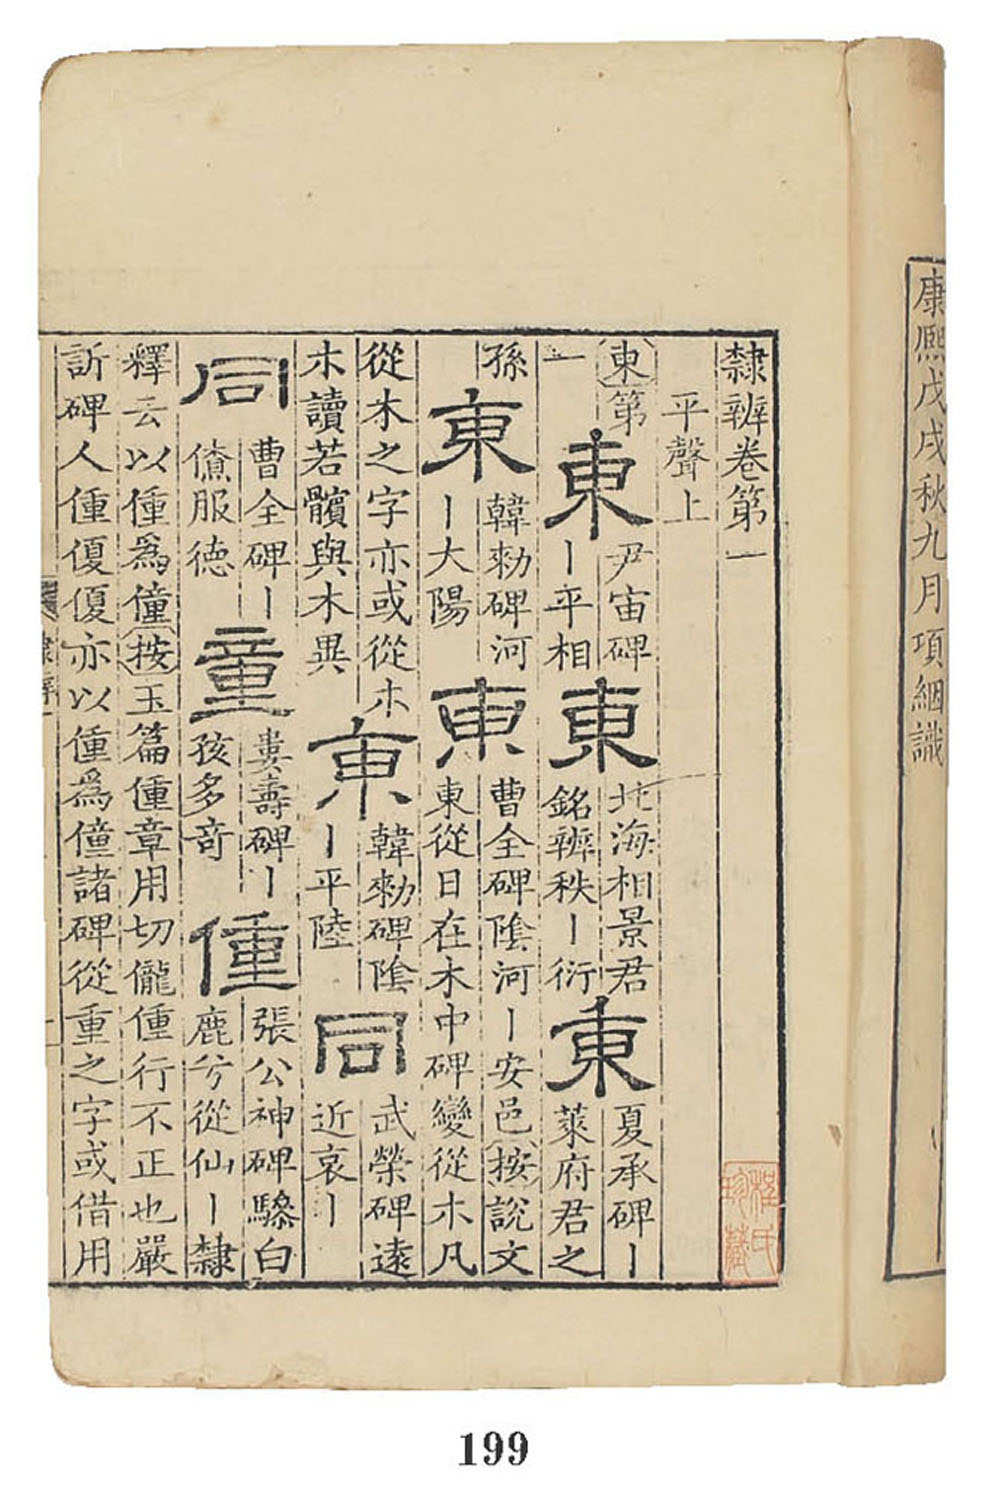 康熙戊戌秋九月項絪識
隸辨卷第一
平聲上
東第一 東 尹宙碑丨平相 東 北海相景君銘辨秩丨衍 東 夏承碑丨萊府君之
孫 東 韓勑碑河丨大陽 東 曹全碑陰河丨安邑按說文東從日在木中碑變從朩凡
從木之字亦或從朩朩讀若髕與木異 東 韓勑碑陰丨平陸 同 武榮碑遠近哀丨
同 曹全碑丨儐服德 童 婁壽碑丨孩多奇 偅 張公神碑驂白鹿兮從仙丨隸
釋云以偅爲僮按玉篇偅章用切儱偅行不正也嚴
訢碑人偅優優亦以偅爲僮諸碑從重之字或借用
程氏珍藏
199